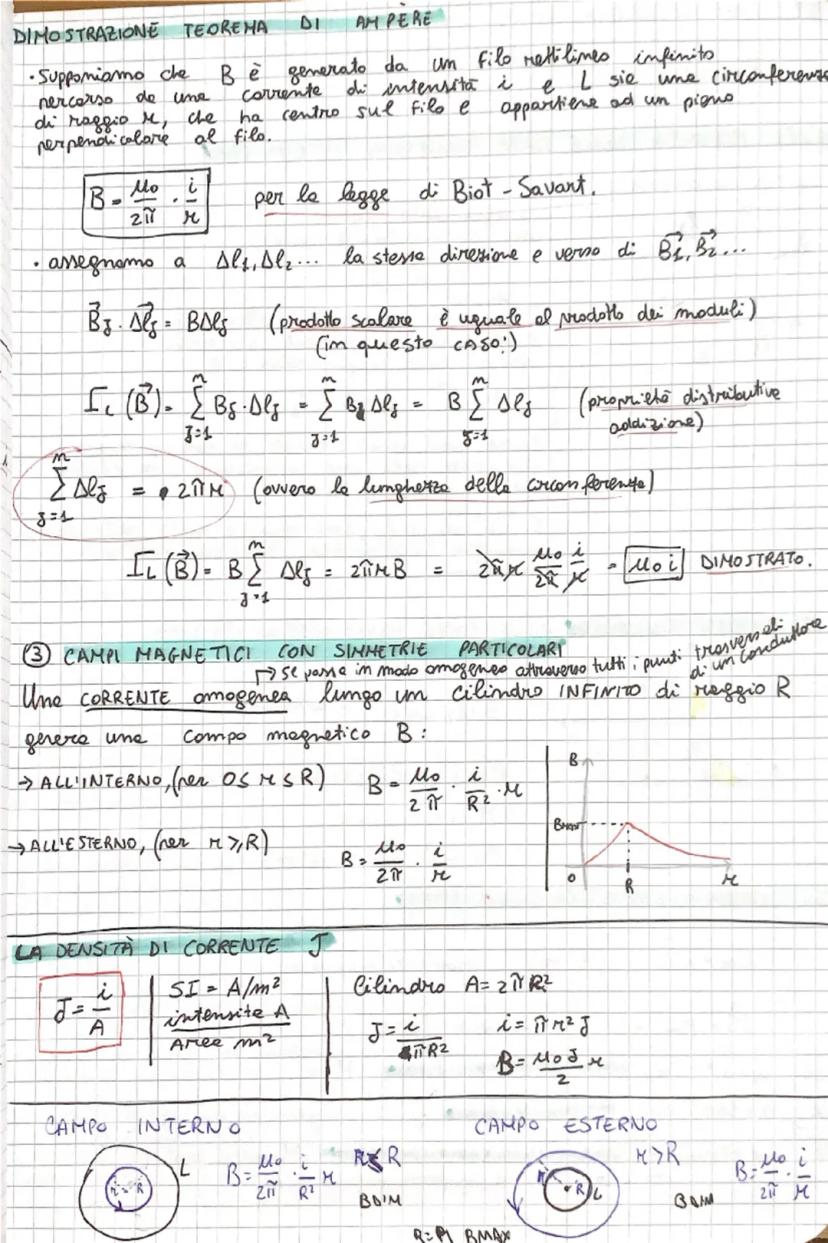 DIMOSTRAZIONE TEOREMA DI AMPÈRE
• Supponiamo che B è generato da un filo rettilineo infinito
percorso da una corrente di intensità i e L sia una circonferenza
di raggio r, che ha centro sul filo e appartiene ad un piano
perpendicolare al filo.
B = μ0/2π · i/r per la legge di Biot - Savart.
• assegnamo a Δl1, Δl2 ... la stessa direzione e verso di B⃗1, B⃗2 ...
B⃗j · Δl⃗j = BΔlj (prodotto scalare è uguale al prodotto dei moduli)
(in questo CASO!)
ΓL (B⃗) = Σ(j=1→n) Bj · Δlj = Σ(j=1→n) Bj Δlj = B Σ(j=1→n) Δlj (proprietà distributiva
addizione)
Σ(j=1→n) Δlj = 2πr (ovvero la lunghezza della circonferenza)
ΓL (B⃗) = B Σ(j=1→n) Δlj = 2πrB = 2πr μ0/2π i/r = μ0 i DIMOSTRATO.
③ CAMPI MAGNETICI CON SIMMETRIE PARTICOLARI
↱ se passa in modo omogeneo attraverso tutti i punti trasversali
di un conduttore
Una CORRENTE omogenea lungo un cilindro INFINITO di raggio R
genera una campo magnetico B:
→ ALL'INTERNO, (per 0 ≤ r ≤ R) B = μ0/2π · i/R² · r
→ ALL'ESTERNO, (per r ≥ R) B = μ0/2π · i/r
B
Bmax
0 R r
LA DENSITÀ DI CORRENTE J
J = i/A
SI = A/m²
intensità A
Area m²
Cilindro A = 2πR²
J = i/πR² i = πr²J
B = μ0J/2 r
CAMPO INTERNO
L
r R
B = μ0/2π · i/R² r
R
CAMPO ESTERNO
r R L
r > R
B = μ0/2π · i/r
BMAX